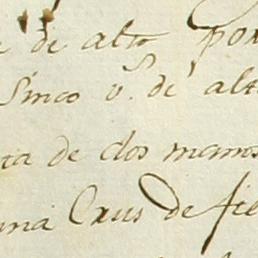 de alto por
Sinco v.s de alt
ta de dos manos
una Crus de fie